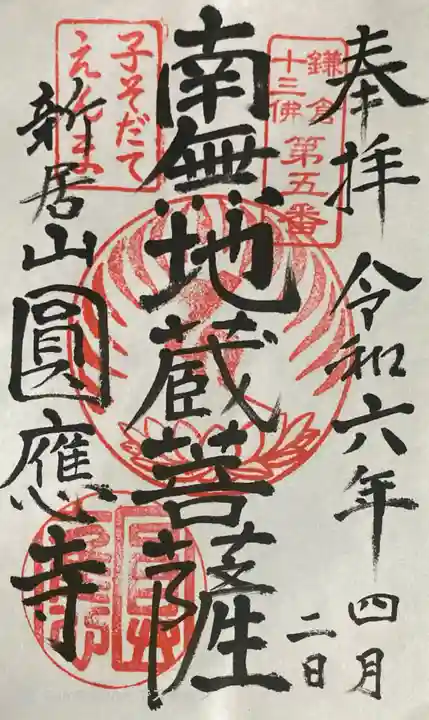 奉拝
令和六年四月二日
鎌倉
十三佛
第五番
南無地蔵菩薩
子そだて
えんま
新居山圓應寺